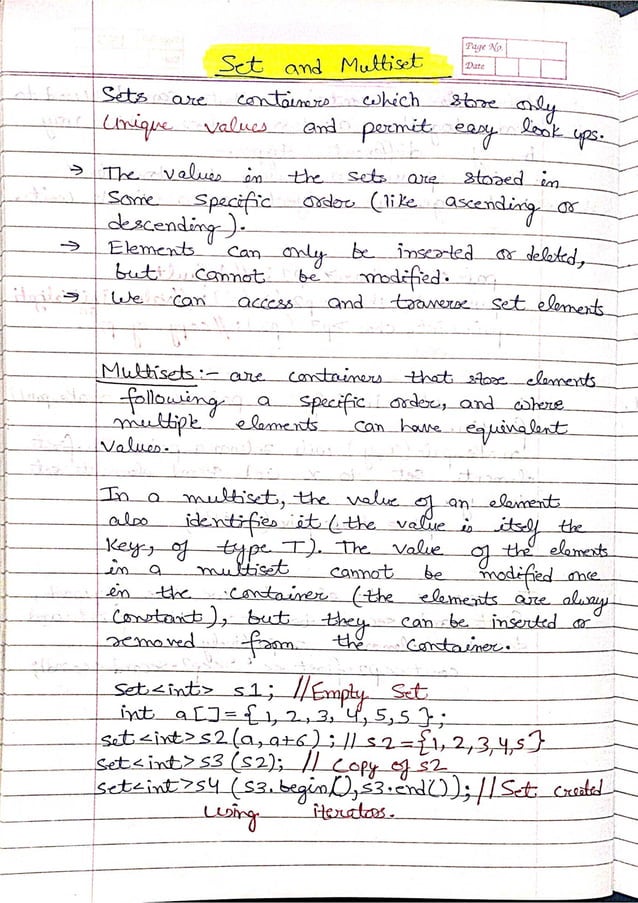 Set and Multiset
Page No.
Date
Sets are containers which store only
Unique values and permit easy look ups.
→ The values in the sets are stored in
Some specific order (like ascending or
descending).
→ Elements can only be inserted or deleted,
but cannot be modified.
→ We can access and traverse set elements
Multisets:- are containers that store elements
following a specific order, and where
multiple elements can have equivalent
values.
In a multiset, the value of an element
also identifies it (the value is itself the
Key, of type T). The value of the elements
in a multiset cannot be modified once
in the container (the elements are alway
constant), but they can be inserted or
removed from the container.
set<int> s1; //Empty Set
int a[]={1, 2, 3, 4, 5, 5};
set<int>s2(a, a+6); // s2={1, 2, 3, 4, 5}
set<int>s3(s2); // Copy of s2
set<int>s4 (s3.begin(), s3.end()); //Set created
using iterators.